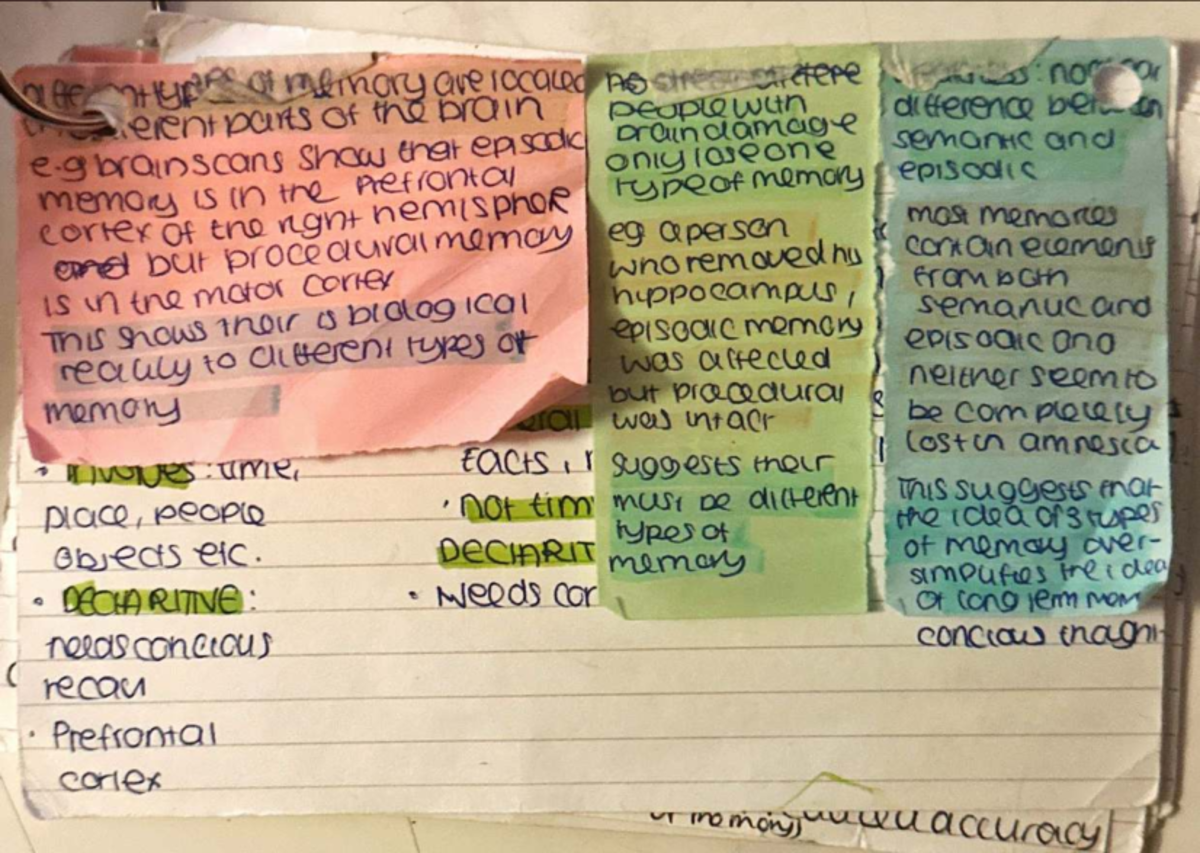 different types of memory are located
different parts of the brain
e.g brain scans show that episodic
memory is in the prefrontal
cortex of the right hemisphore
but procedural memory
is in the motor cortex
This shows their is biological
reality to different types of
memory
people with
brain damage
only lose one
type of memory
eg a person
who removed his
hippocampus,
episodic memory
was affected
but procedural
was intact
suggests their
must be different
types of
memory
difference between
semantic and
episodic
most memories
contain elements
from both
semantic and
episodic and
neither seem to
be completely
lost in amnesia
This suggests that
the idea of 3 types
of memory over-
simplifies the idea
of long term mem
• involves: time,
place, people
objects etc.
• DECLARITIVE:
needs concious
recall
• Prefrontal
cortex
facts,
• not tim
DECLARIT
• Needs con
concious though
of memory,
accuracy